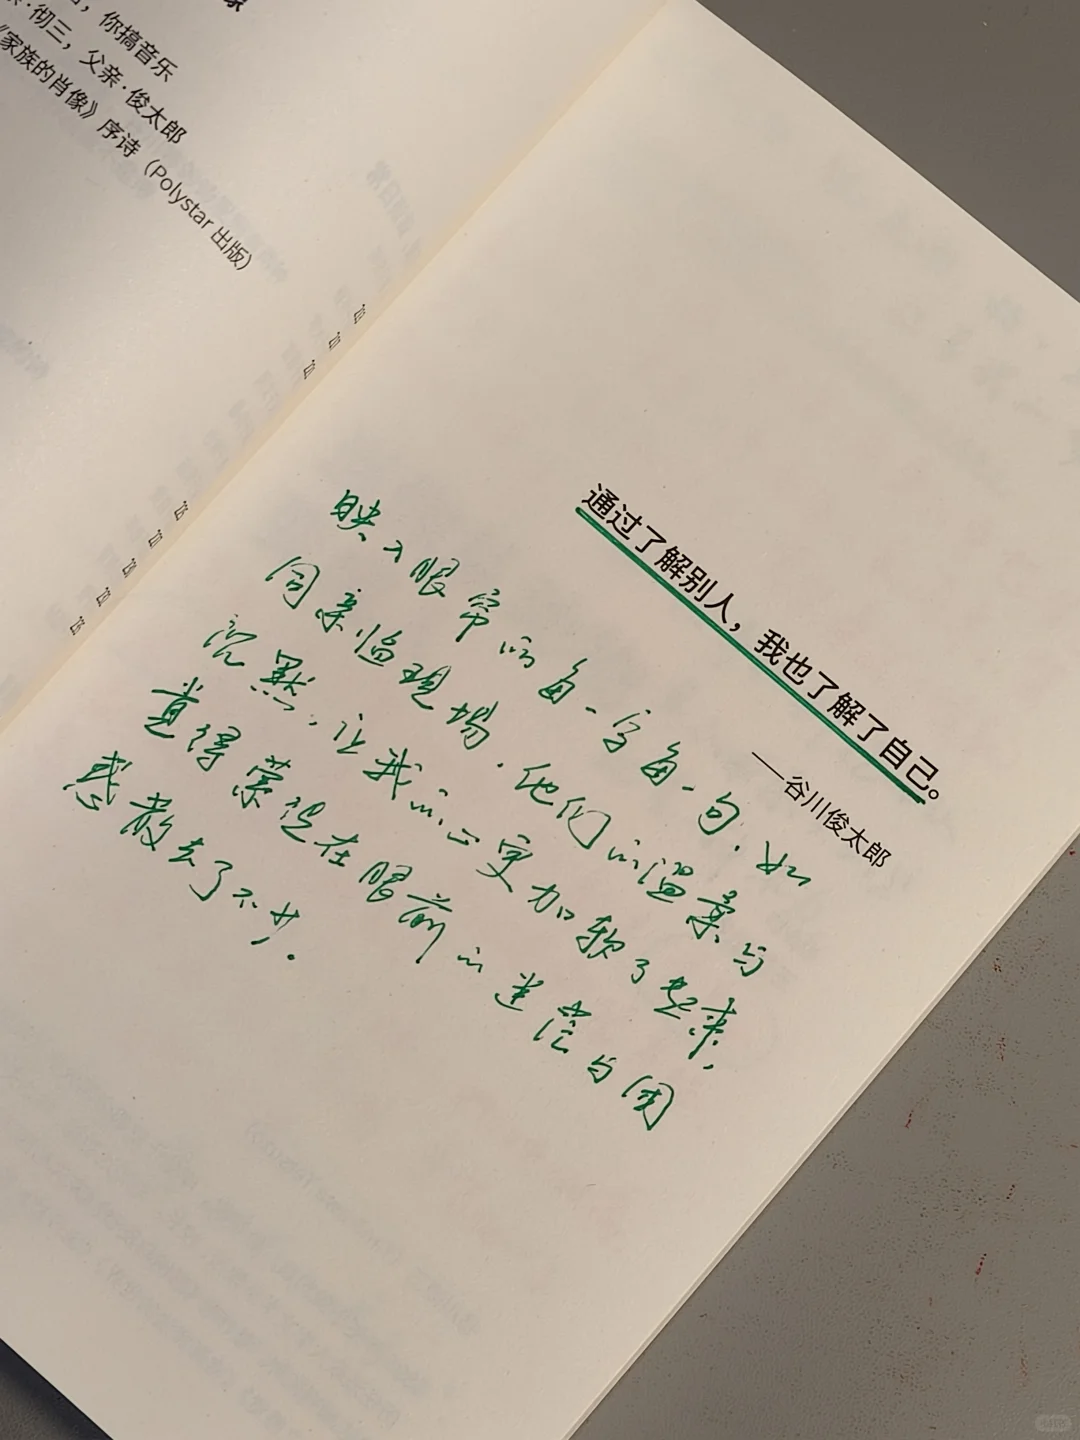 你搞音乐
·彻三，父亲·俊太郎
《家族的肖像》序诗（Polystar 出版）
通过了解别人，我也了解了自己。
——谷川俊太郎
映入眼帘的每一字每一句，如
同亲临现场，他们的温柔与
沉默，让我的心更加软了起来，
觉得萦迟在眼前的迷茫与困
惑散去了不少。